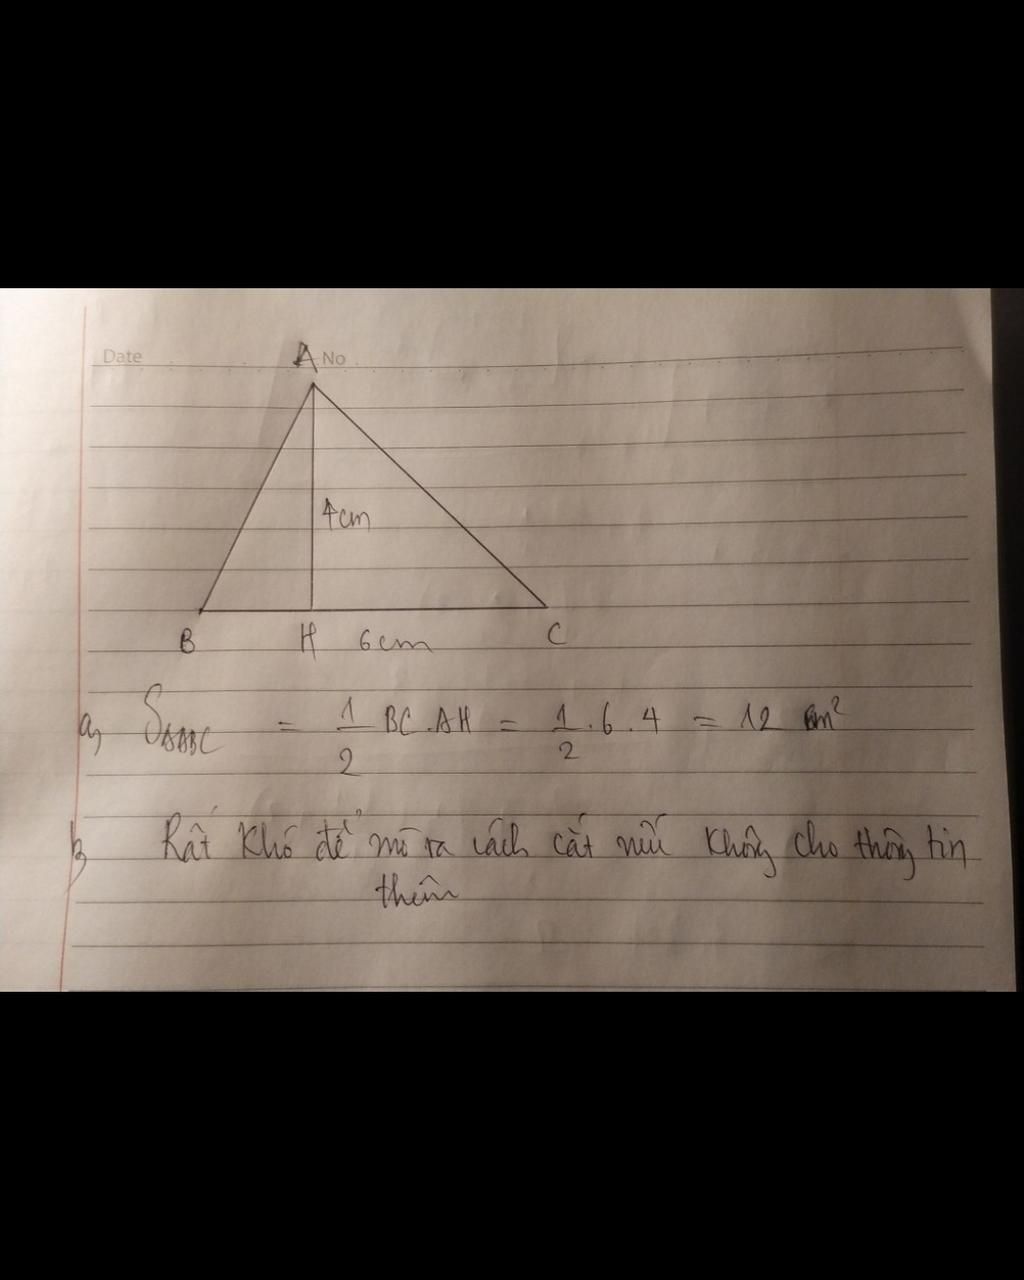 Date A No
4cm
B H 6cm C
a, SΔABC = 1/2 BC.AH = 1/2 . 6 . 4 = 12 cm²
b, Rất khó để mò ra cách cắt nếu không cho thông tin
thêm